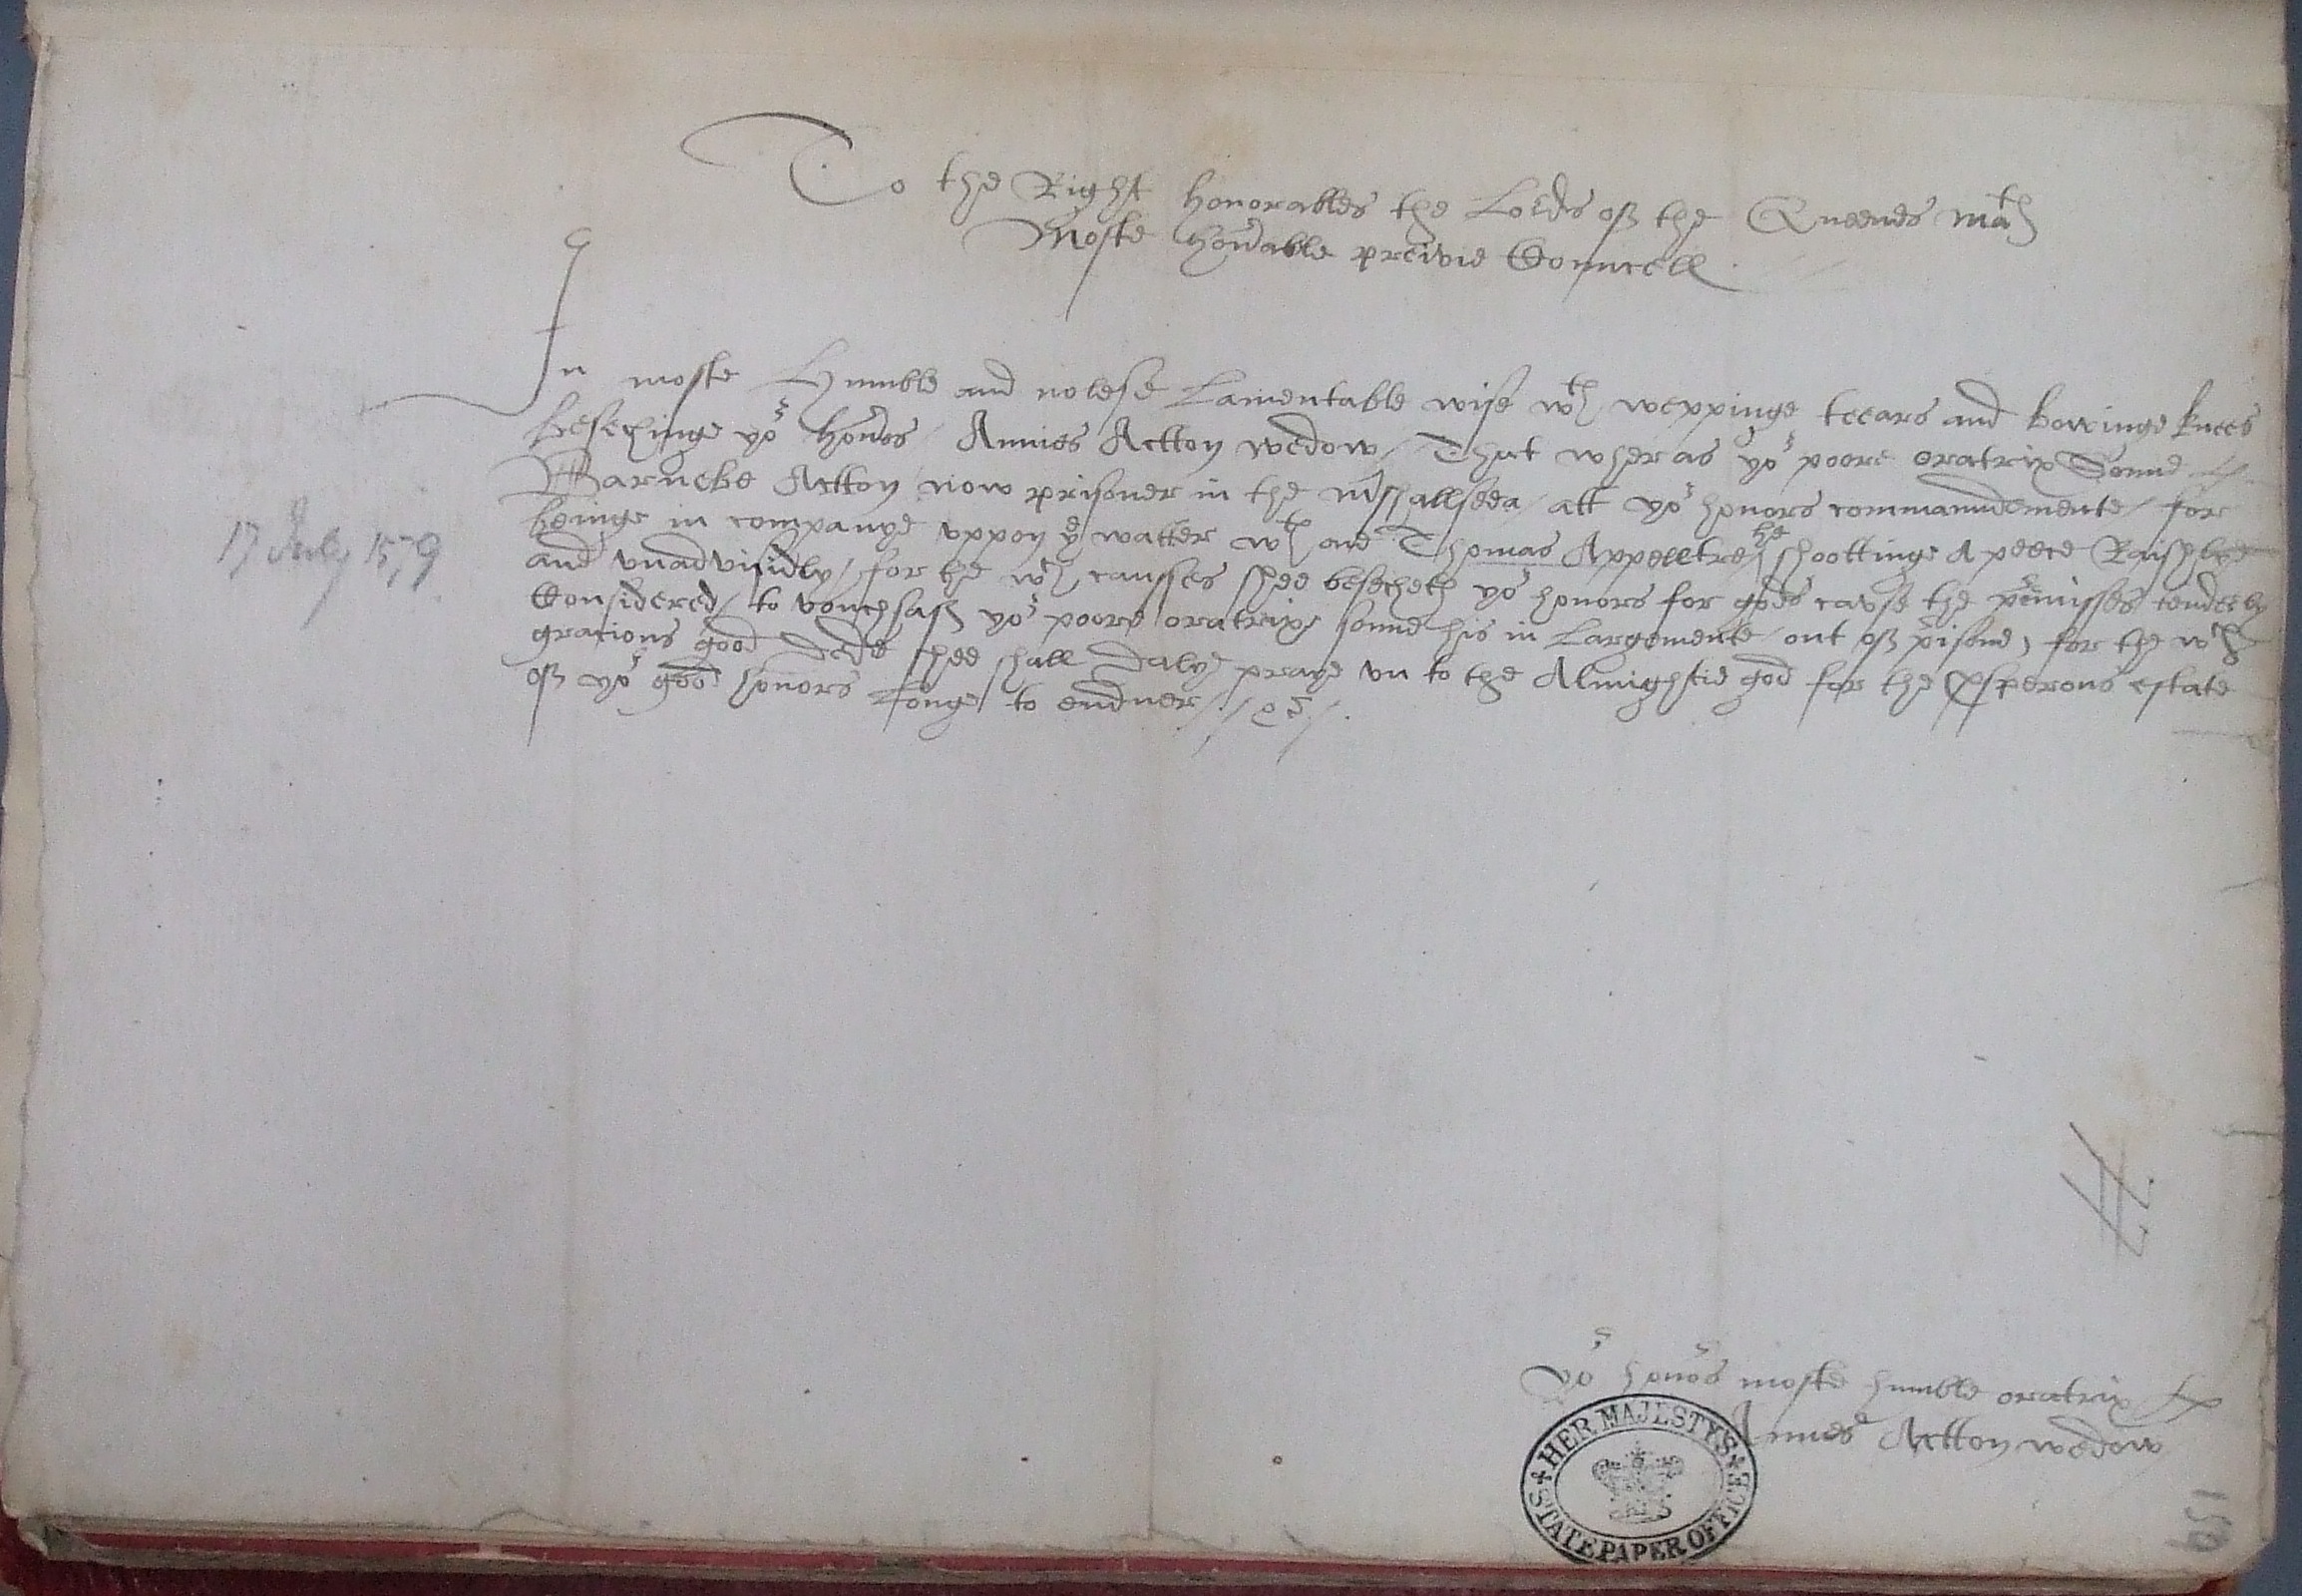 To the Right honorables the Lords off the Queenes ma^tis
Moste hon^rable preivie Counncell
In moste Humble and nolese Lamentable wise w^th weppinge teears and bowinge knees
besechinge yo^r hono^rs / Annies Actton wedow / That wheras yo^r poore oratrix Sonne
Barnebe Actton now prisoner in the m^rshallseea / att yo^r honors commanndemente / for
beinge in companye vppon y^e watter w^th one Thomas Appeeltre / he shoottinge A peece Raishlye
and vnadvisidly / for the w^ch caussses shee besecheth yo^r honors for godes cavse the p^remisses tenderly
Considered / to vouchsaff yo^r poore oratrixe sonne his in Largemente / out off prisone, for the w^ch
gracious good dede shee shall dalye praye vn to the Almightie god for the prosperous estate
off yo^r good honors Longe to enduer / / &c /
17 July 1579
yo^r hono^rs moste humble oratrix
Annes Actton wedow
HER MAJESTY'S
STATE PAPER OFFICE
159